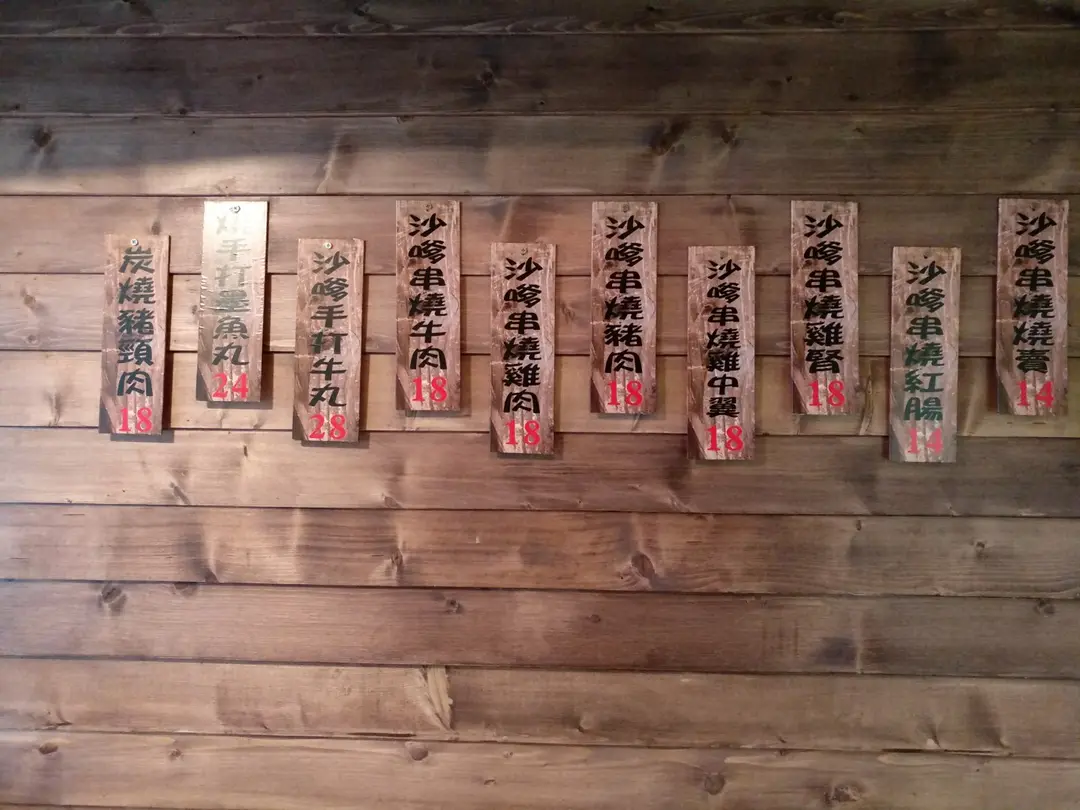 炭燒豬頸肉
18
手打墨魚丸
24
沙嗲手打牛丸
28
沙嗲串燒牛肉
18
沙嗲串燒雞肉
18
沙嗲串燒豬肉
18
沙嗲串燒雞中翼
18
沙嗲串燒雞腎
18
沙嗲串燒紅腸
14
沙嗲串燒燒賣
14